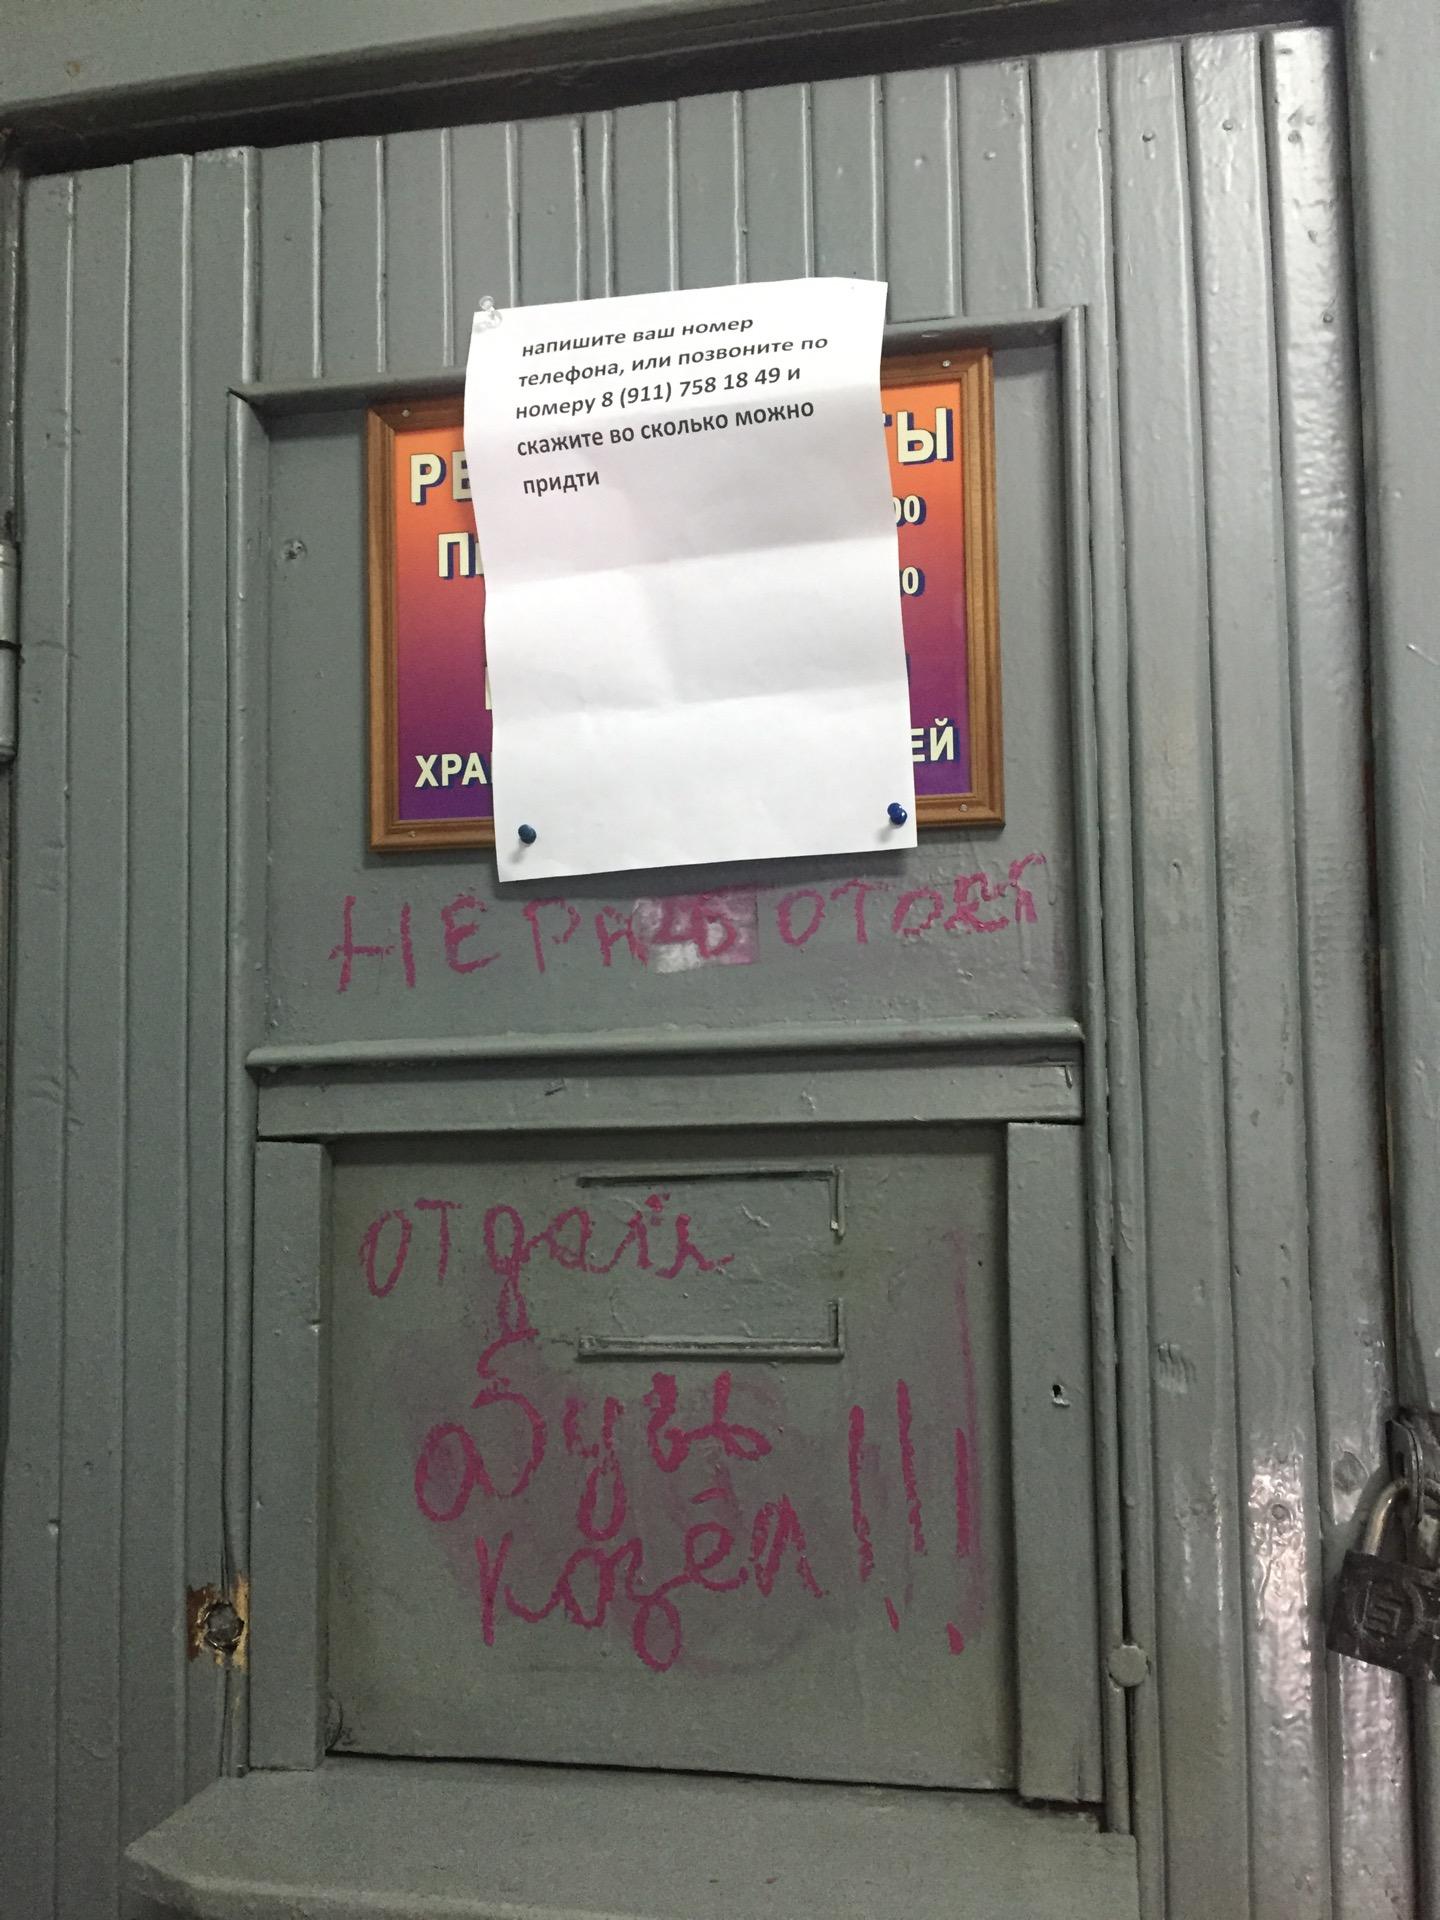 напишите ваш номер
телефона, или позвоните по
номеру 8 (911) 758 18 49 и
скажите во сколько можно
придти
РЕ ТЫ
00
ХРА ЕЙ
НЕ РАБОТОЕТ
отдай
обувь
козёл!!!